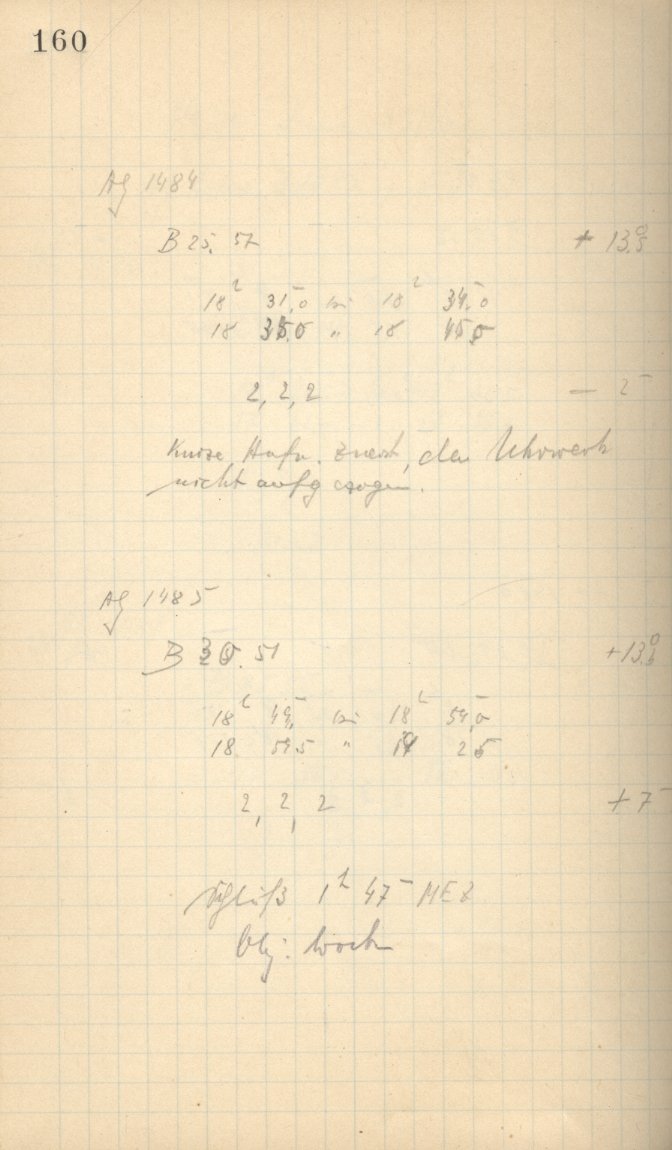 160
AG 1484
B 25. 57 + 13.5
18h 31,0 bis 18h 34,0
18 35.0 " 18 45,5
2, 2, 2 — 2
Kurze Aufn. zuerst, da Uhrwerk
nicht aufgezogen.
AG 1485
B 51 +13.
18h 49, bis 18h 54,0
18 54.5 " 19 2 5
2, 2, 2 + 7
Schluß 1h 47 MEZ